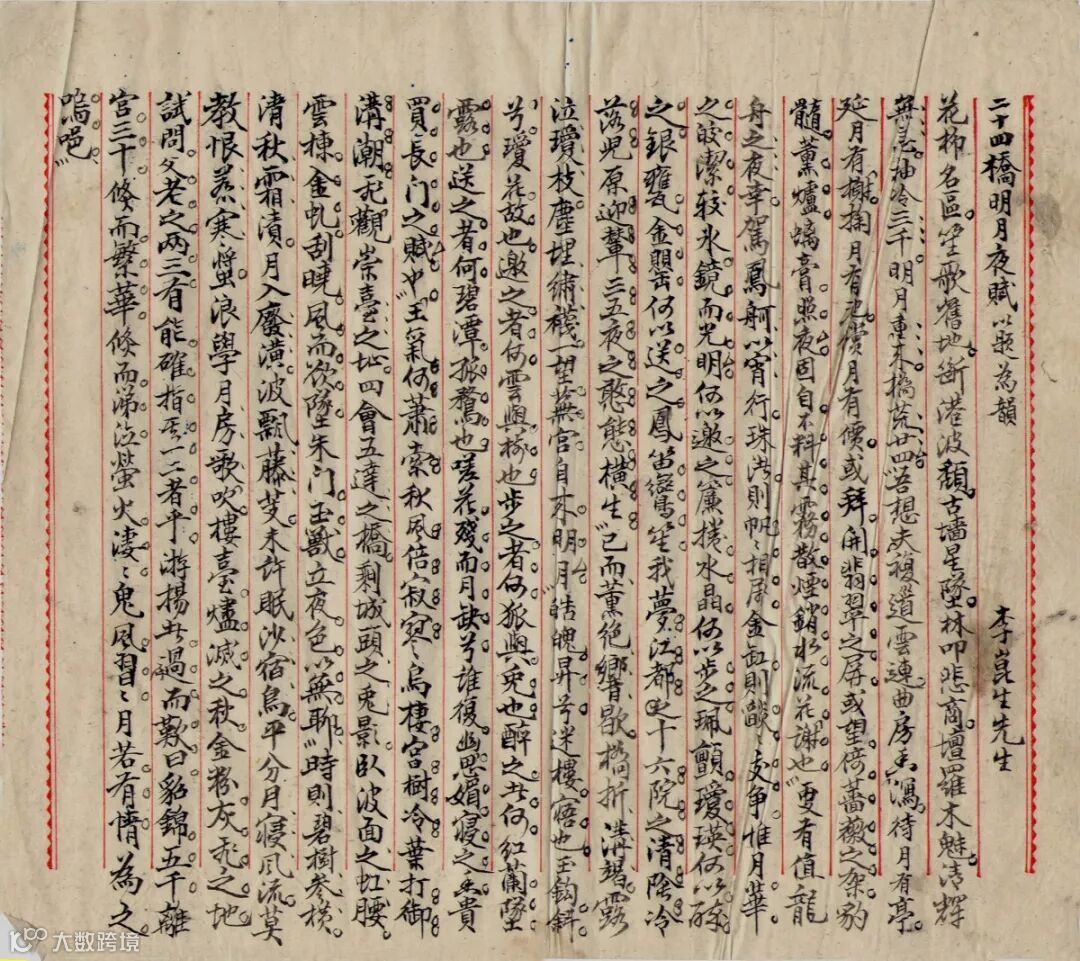 二十四橋明月夜賦 以題為韻 李崑生先生
花柳名區笙歌舊地斷港波頹古墻星墜林叩悲商壇羅木魅清輝
無恙抽冷三千明月重來橋荒廿四吾想夫複道雲連曲房香瀉待月有亭
延月有榭掬月有池償月有價或拜開翡翠之屏或望倚薔薇之架豹
髓薰爐螭膏照夜固自不料其霧散煙銷水流花謝也更有值龍
舟之夜幸駕鳳舸以宵行珠洪則帆〻相屬金缸則燄〻交爭惟月華
之皎潔較氷鏡而光明何以邀之簾捲水晶何以步之珮顫瓊瑛何以酔
之銀甕金罌何以送之鳳笛鸞笙我夢江都之十六院之清除冷
落兒原迎輦三五夜之憨態橫生已而薰絶響歇橋折溝竭露
泣瓊枝塵埋繡襪望蕪宮自來明月皓魄昇兮迷樓寤也玉鈎斜
兮瓊花故也邀之者何雲與榆也步之者何狐與兔也醉之者何紅蘭墜
露也送之者何碧潭孤鶩也嗟花殘而月缺兮誰復幽思媚寢之香貴
買長门之賦也王氣何蕭索秋風倍寂寞〻烏棲宮樹冷葉打御
溝潮死觀崇臺之址四會五達之橋剩城頭之兎影臥波面之虹腰
雲棟金虬刮曉風而欲墜朱门玉獸立夜色以無聊時則碧樹參橫
清秋霜漬月入廢潢波飄藤芰未許眠沙宿烏平分月寢風流莫
教恨惹寒螿浪學月房歌吹樓臺燼滅之秋金粉灰飛之地
試問父老之兩三有能確指其一二者乎游揚者過而歎曰貂錦五千離
宮三十倏而繁華倏而涕泣螢火凄〻鬼風習〻月若有情為之
嗚唈
大数跨境